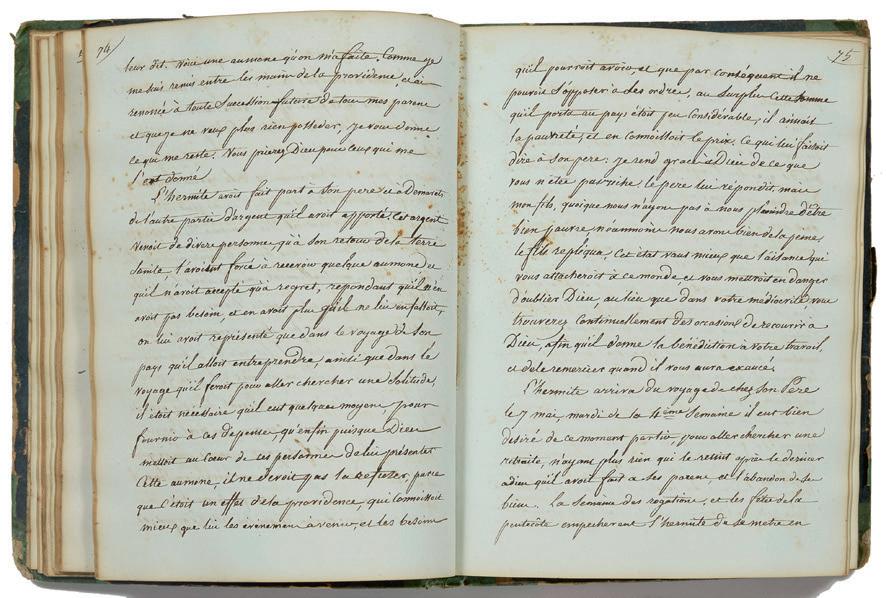 74
leur dit. Voici une aumone qu'on m'a faite, Comme je
me suis remis entre les mains de la providence, et ai
renoncé à toute Succession future de tous mes parens
et que je ne veux plus rien posséder, je vous donne
ce qui me reste. Vous prierez Dieu pour ceux qui me
l'ont donné
L'hermite avoit fait part à Son pere et à Demarets
de l'autre partie d'argent qu'il avoit apporté. Cet argent
venoit de divers personnes qu'à son retour de la terre
Sainte l'avoient forcé à recevoir quelque aumone et
qu'il n'avoit accepté qu'à regret, répondant qu'il n'en
avoit pas besoin, et en avoit plus qu'il ne lui en falloit,
on lui avoit représenté que dans le voyage de Son
pays qu'il alloit entreprendre, ainsi que dans le
voyage qu'il feroit pour aller chercher une Solitude,
il étoit nécessaire qu'il eut quelques moyens, pour
fournir à ces dépenses, qu'enfin puisque Dieu
mettoit au Cœur de ces personnes de lui présenter
Cette aumone, il ne devoit pas la refuser, parce
que C'étoit un effet de la providence, qui Connoissoit
mieux que lui les événemens à venir, et les besoins
75
qu'il pourroit avoir, et que par conséquent il ne
pouvoit S'opposer à Ses ordres, au Surplus Cette Somme
qu'il porta au pays étoit peu Considérable; il aimoit
la pauvreté, et en connoissoit le prix. Ce qui lui faisoit
dire à Son pere: je rend grace à Dieu de ce que
vous n'êtes pas riche. le pere lui répondit, mais
mon fils, quoique nous n'ayons pas à nous plaindre d'être
bien pauvre, néanmoins nous avons bien de la peine,
le fils repliqua, Cet état vaut mieux que l'aisance qui
vous attacheroit à ce monde, et vous mettroit en danger
d'oublier Dieu, au lieu que dans votre médiocrité, vous
trouverez Continuellement des occasions de recourir à
Dieu, afin qu'il donne la bénédiction à votre travail,
et de le remercier quand il vous aura exaucé.
L'hermite arriva du voyage de chez Son Pere
le 7 mai, mardi de la 4ème Semaine il eut bien
désiré de ce moment partir, pour aller chercher une
retraite, n'ayant plus rien qui le retint après le dernier
adieu qu'il avoit fait à Ses parens, et l'abandon de ses
biens. la Semaine des rogations, et les fêtes de la
pentecôte empecherent l'hermite de se mettre en